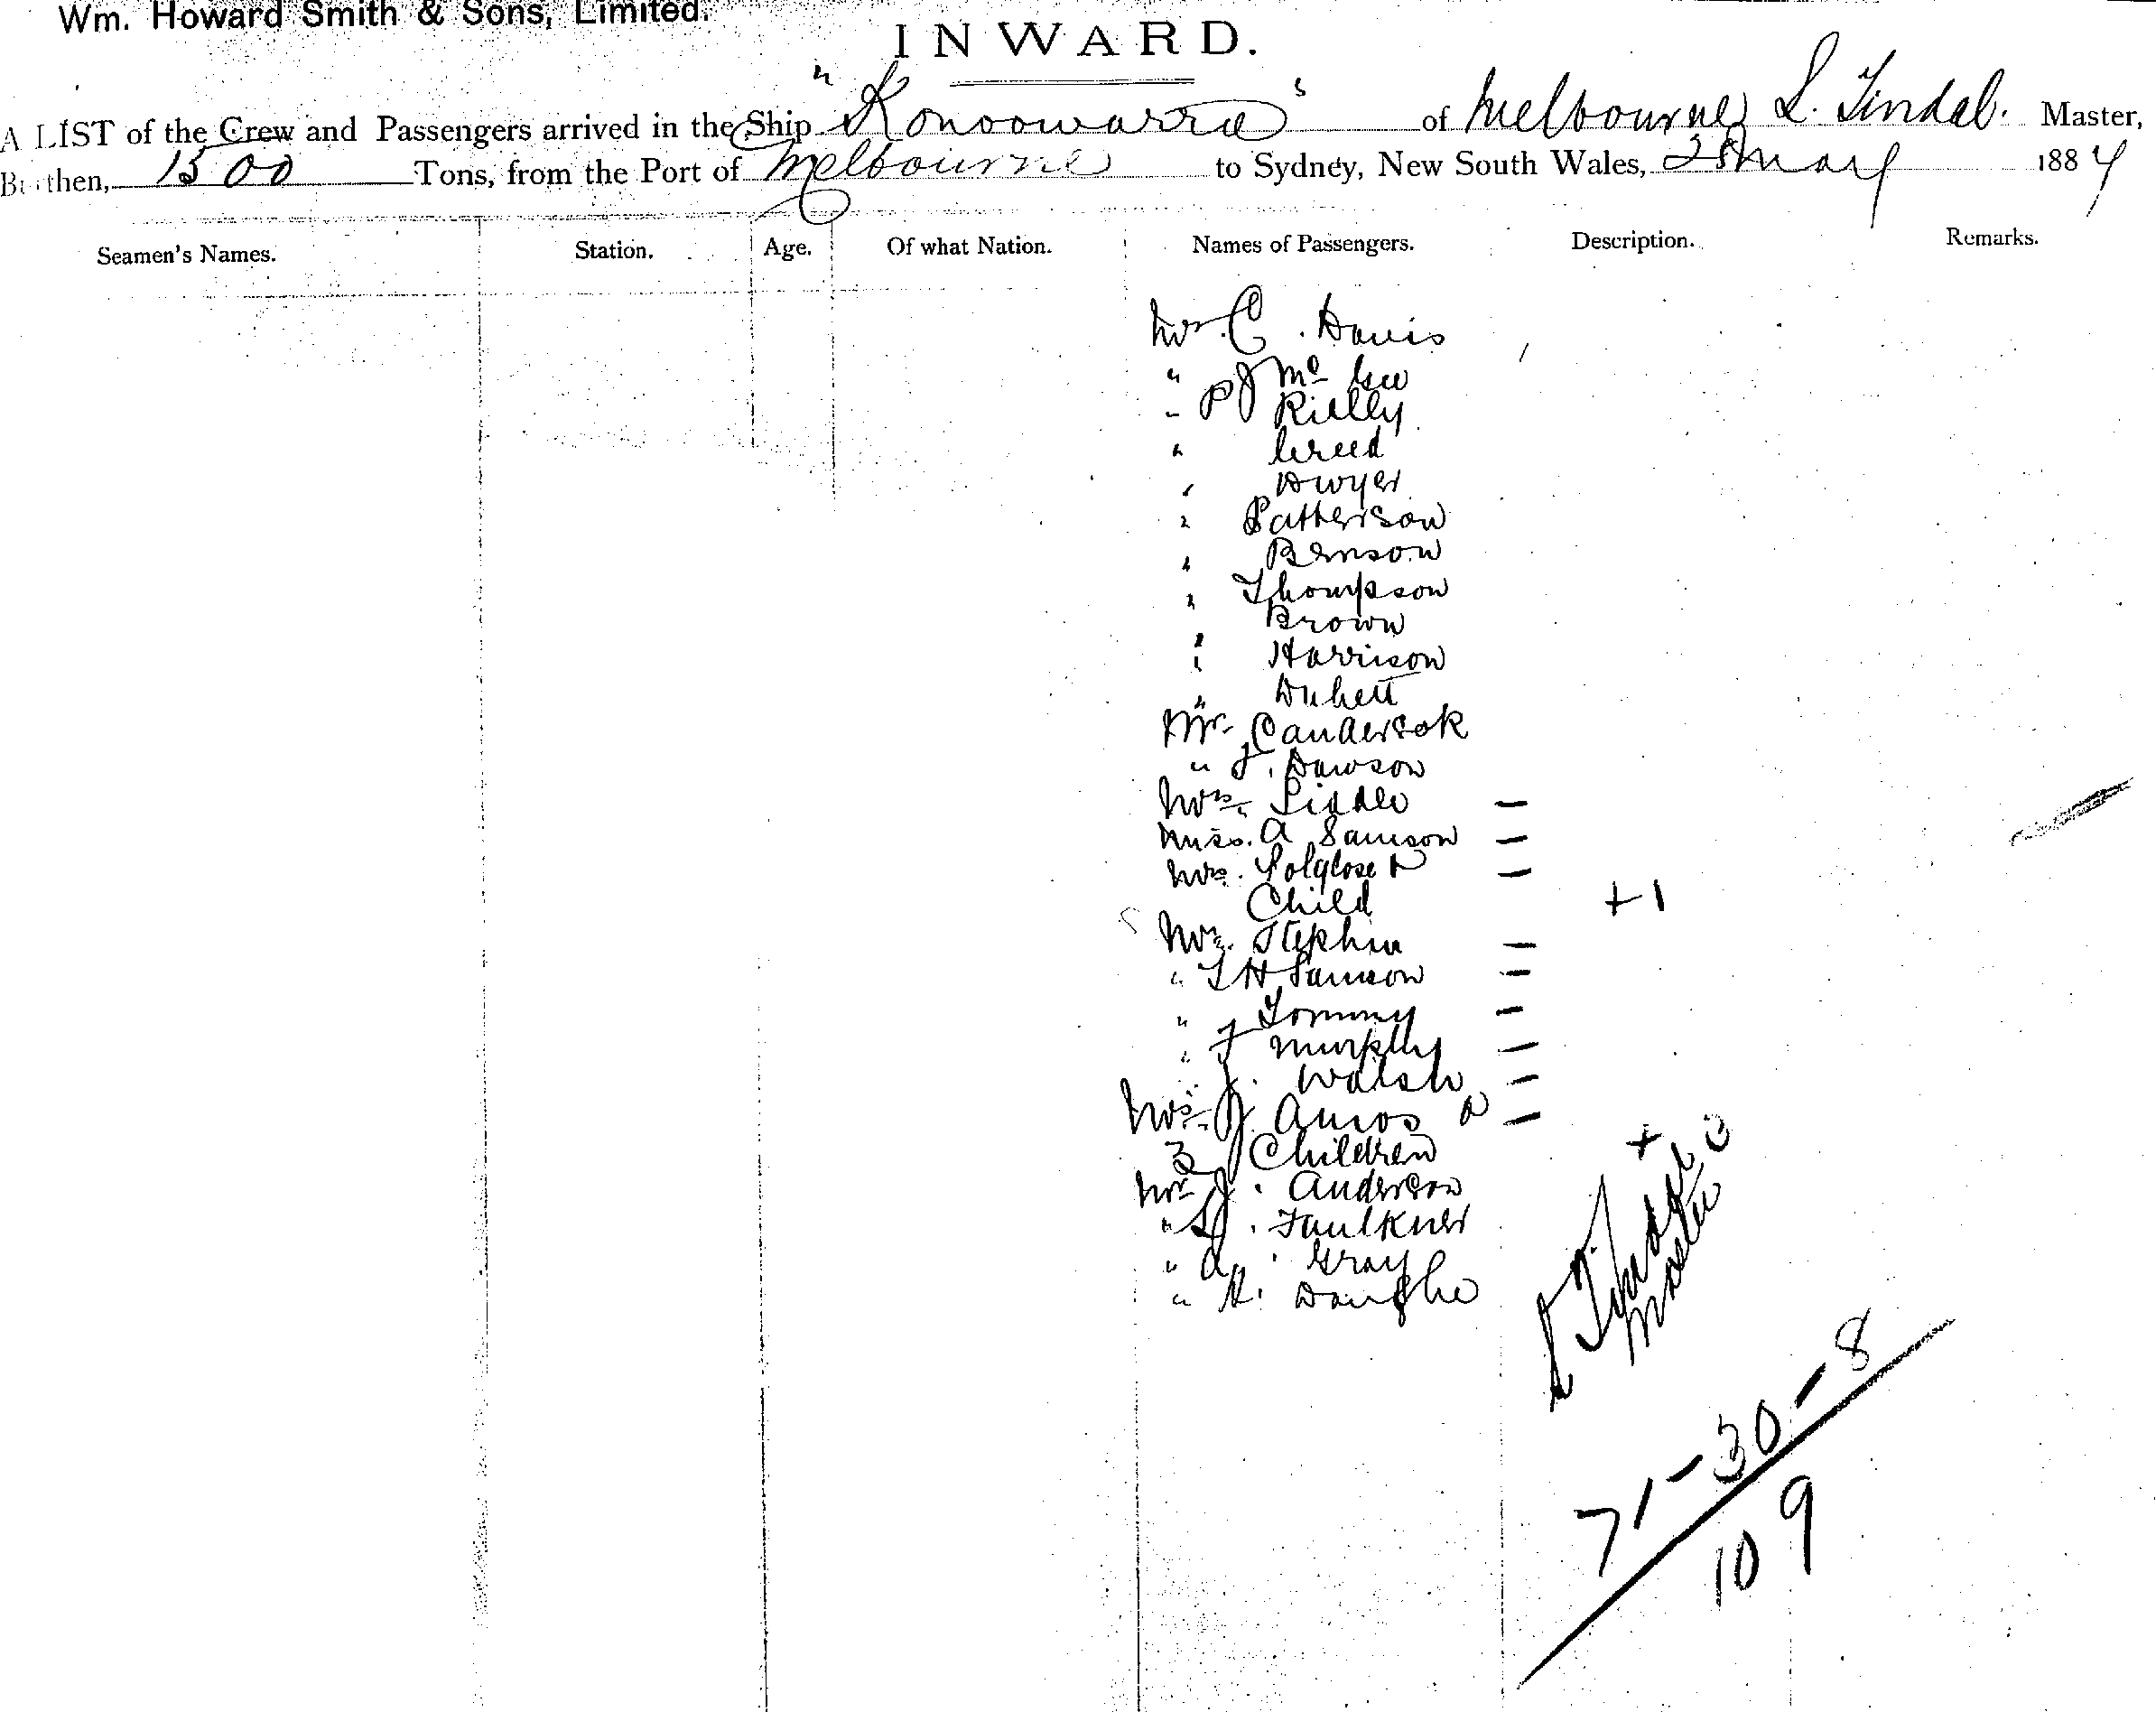 Wm. Howard Smith & Sons, Limited.
INWARD.
A LIST of the Crew and Passengers arrived in the Ship "Konoowarra" of Melbourne, L. Tindal. Master,
Burthen, 1500 Tons, from the Port of Melbourne to Sydney, New South Wales, 28 May 1884
Seamen's Names. Station. Age. Of what Nation. Names of Passengers. Description. Remarks.
Mr C. Davis
" P J Mc
" Rielly
" Creed
" Dwyer
" Patterson
" Benson
" Thompson
" Brown
" Harrison
"
Mr
" J. Dawson
Mrs. Liddle —
Miss. A Samson —
Mrs. Polglose &  —
Child +1
Mr. Stephen —
" T H Samson —
" Tommy —
" J Murphy —
" J. Walsh —
Mrs. J. Amos & —
3 Children + 3
Mr J. Anderson
" L J. Faulkner
" A. Gray
" H.
L Tindal
Master
71-30-8
109